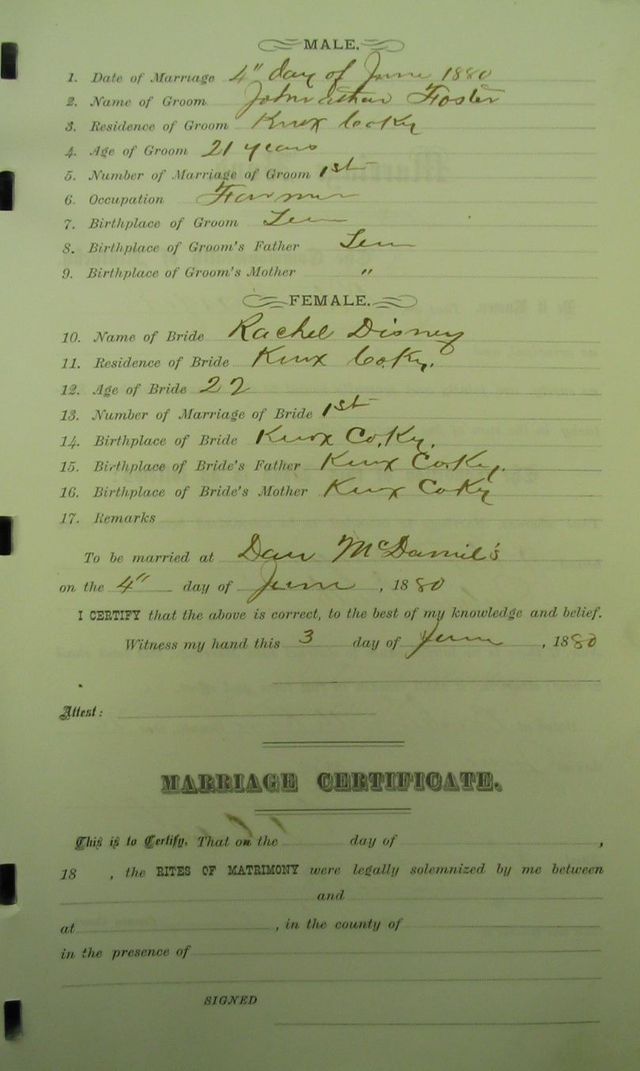 MALE.
1. Date of Marriage 4" day of June 1880
2. Name of Groom Johnathan Foster
3. Residence of Groom Knox Co Ky
4. Age of Groom 21 years
5. Number of Marriage of Groom 1st
6. Occupation Farmer
7. Birthplace of Groom Tenn
8. Birthplace of Groom's Father Tenn
9. Birthplace of Groom's Mother "
FEMALE.
10. Name of Bride Rachel Disney
11. Residence of Bride Knox Co. Ky.
12. Age of Bride 22
13. Number of Marriage of Bride 1st
14. Birthplace of Bride Knox Co. Ky.
15. Birthplace of Bride's Father Knox Co Ky.
16. Birthplace of Bride's Mother Knox Co Ky
17. Remarks
To be married at Dan McDaniel's
on the 4" day of June, 1880
I CERTIFY that the above is correct, to the best of my knowledge and belief.
Witness my hand this 3 day of June, 1880
Attest:
MARRIAGE CERTIFICATE.
This is to Certify, That on the day of ,
18 , the RITES OF MATRIMONY were legally solemnized by me between
and
at , in the county of
in the presence of
SIGNED